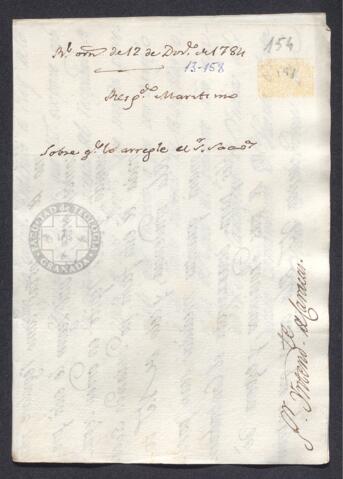 Rl. orn. de 12 de Dore. de 1784
154
13-158
Resp.do Maritimo
Sobre q.e lo arregle el S.r
FACULTAD DE TEOLOGIA
GRANADA
S.r Intend.te de Caracas.